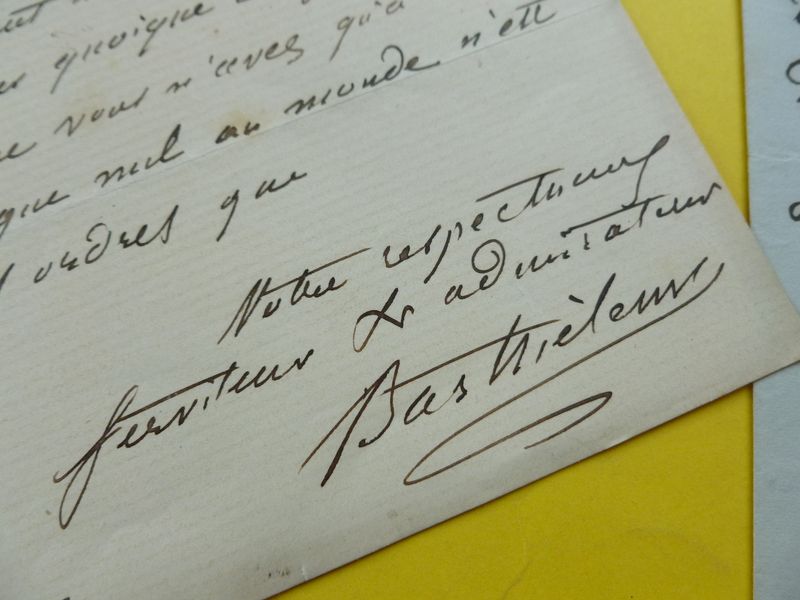 quoique
vous n'avez qu'à
que nul au monde n'est
ordres que
Votre respectueux
serviteur & admirateur
Barthièleur